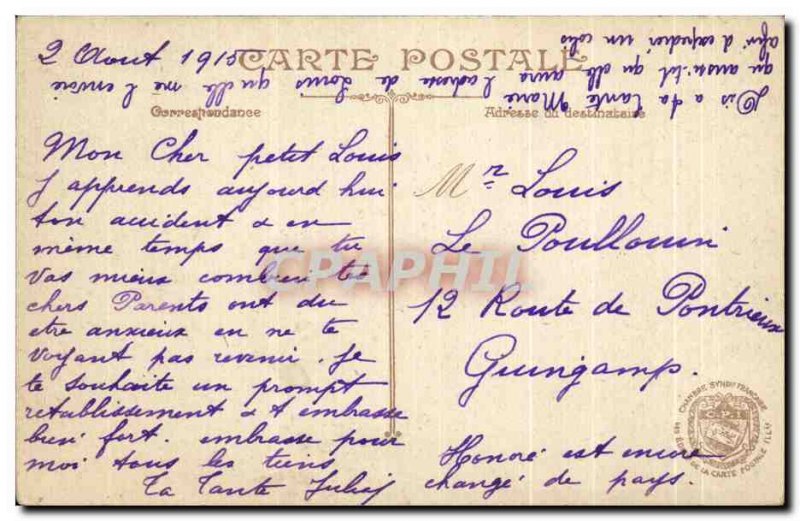 2 Aout 1915
CARTE POSTALE
Correspondance
Adresse du destinataire
Mon Cher petit Louis
J apprends aujourd hui
ton accident & en
même temps que tu
vas mieux combien tes
chers Parents ont du
etre anxieux en ne te
voyant pas revenir. Je
te souhaite un prompt
retablissement & t embrasse
bien fort. embrasse pour
moi tous les tiens
Ta Tante Julia
Mr Louis
Le Poullouin
12 Route de Pontrieux
Guingamp.
Honoré est encore
changé de pays.
Dis a ta tante Marie
qu aussitot qu elle aura l adresse de Louis qu elle me l envoie
afin d expedier un colis
CPARPHIL
CHAMBRE SYNDle FRANCAISE
C.P.I.
DE LA CARTE POSTALE ILLée